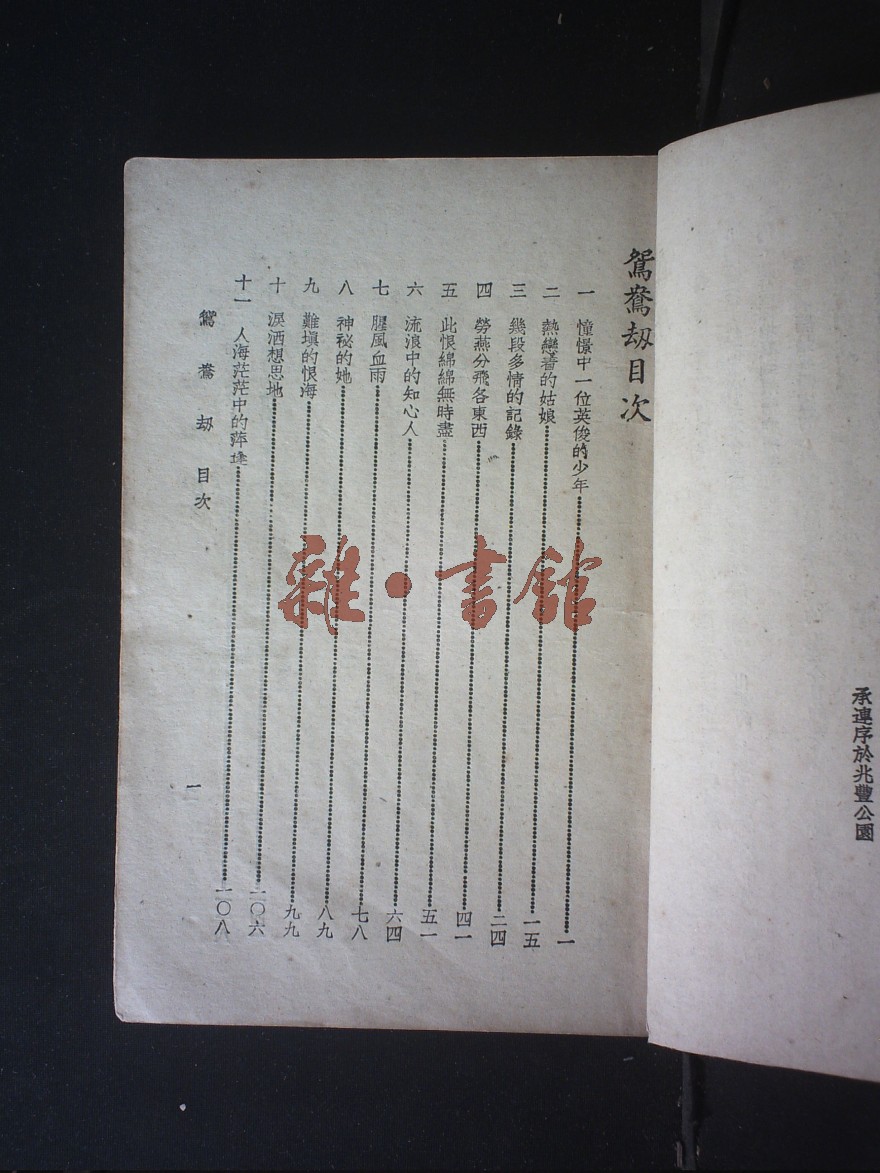 承連序於兆豐公園
鴛鴦劫目次
一 憧憬中一位英俊的少年 一
二 熱戀着的姑娘 一五
三 幾段多情的記錄 二四
四 勞燕分飛各東西 四一
五 此恨綿綿無時盡 五一
六 流浪中的知心人 六四
七 腥風血雨 七八
八 神祕的她 八九
九 難塡的恨海 九九
十 淚洒想思地 一〇六
十一 人海茫茫中的萍逢 一〇八
鴛鴦劫目次
一
雜·書館